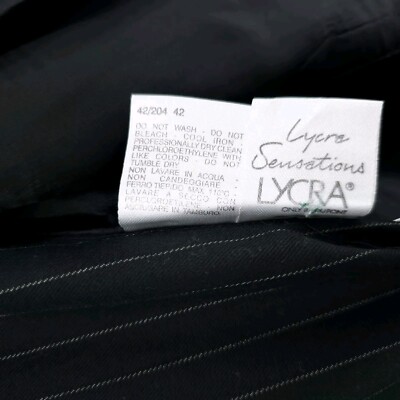 42/204 42
DO NOT WASH - DO NOT
BLEACH - COOL IRON -
PROFESSIONALLY DRY CLEAN
PERCHLOROETHYLENE WITH
LIKE COLORS - DO NOT
TUMBLE DRY
NON LAVARE IN ACQUA -
NON CANDEGGIARE -
FERRO TIEPIDO MAX 110°C -
LAVARE A SECCO CON
PERCLOROETILENE - NON
ASCIUGARE IN TAMBURO
Lycra
Sensations
LYCRA®
ONLY BY DUPONT